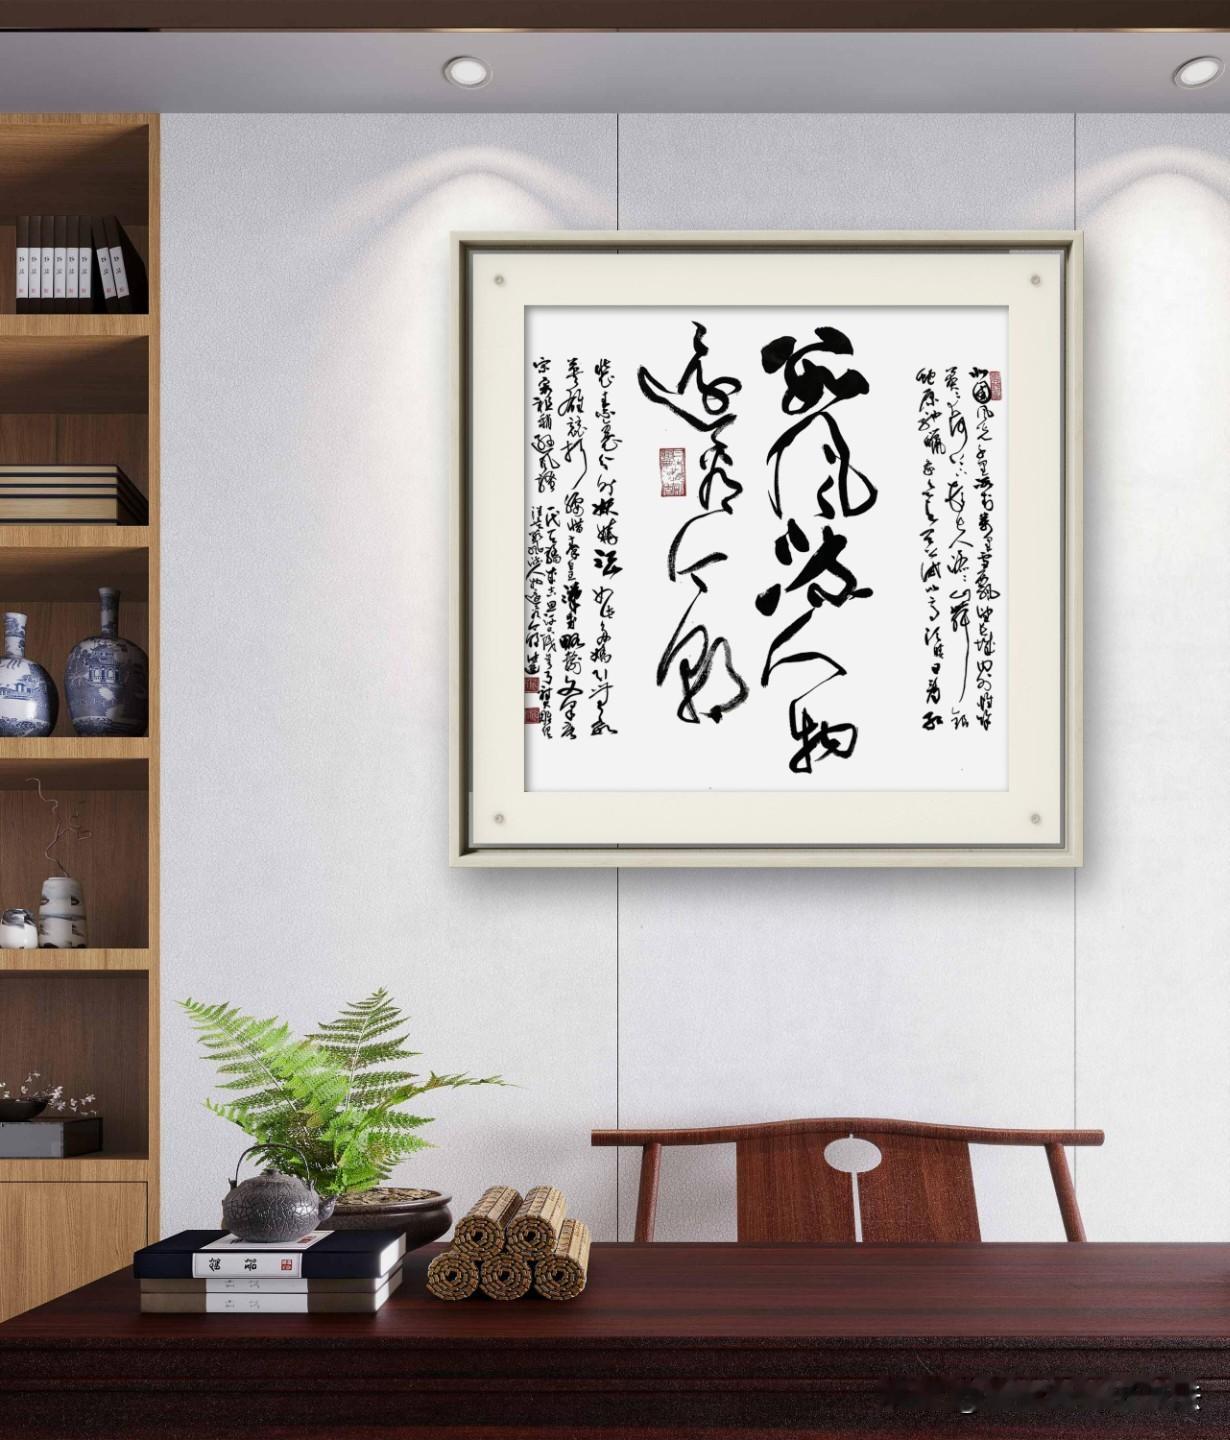 北國风光千里冰封万里雪飘望长城内外惟余
莽莽大河上下顿失滔滔山舞银
蛇原驰蜡象欲与天公试比高须晴日看红
数风流人物
还看今朝
装素裹分外妖娆江山如此多娇引无数
英雄竞折腰惜秦皇汉武略输文采唐
宗宋祖稍逊风骚一代天骄成吉思汗只识弯弓射大雕俱往
矣数风流人物还看今朝